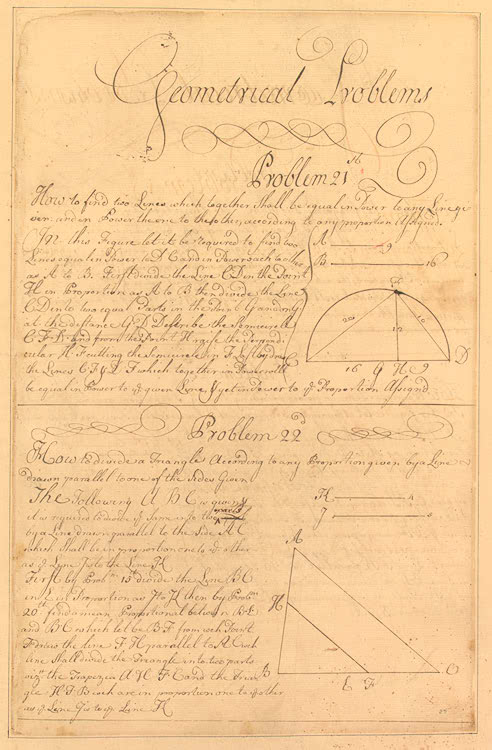 Geometrical Problems
Problem 21st
How to find two Lines which together Shall be equal in Power to any Line gi
ven: and in Power the one to the other, according to any proportion Assigned.
In this Figure let it be required to find two
Lines equal in Power to C D and in Power each to other
as A to B. First divide the Line C D in the Point
H in Proportion as A to B then divide the Line
C D into two equal Parts in the Point G and
at the distance G D Describe the Semicircle
C F D and from the Point H raise the Perpendi
cular H F cutting the Semicircle in F
the Lines C F & F D which together in Power will
be equal in Power to ye given Line, & yet in Power to ye Proportion Assignd
A 9
B 16
F
20
12
16 G H 9 D
Problem 22d
How to divide a Triangle According to any Proportion given by a Line
drawn parallel to one of the Sides Given
The Following A B C is given
it is required to divide ye Same into two parts
by a Line drawn parallel to the Side A C
which Shall be in proportion one to ye other
as ye Line I is to the Line K
First by Probm 15th divide the Line B C
in E in Proportion as I to K then by Probm
20th find a mean Proportional between B E
and B C which let be B F from wch Point
F draw the line F H parallel to A C wch
line Shall divide the Triangle into two parts
viz the Trapezia A H F C and the Trian
gle H F B wch are in proportion one to ye other
as ye Line I is to ye Line K
A
H
B E F C